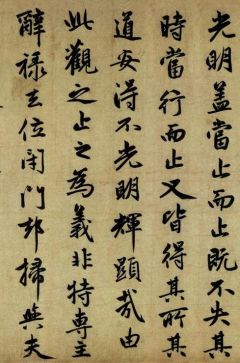 光明蓋當止而止既不失其
時當行而止又皆得其所其
道安得不光明輝顯哉由
此觀之止之為義非特專主
辭祿去位閉門卻掃與夫